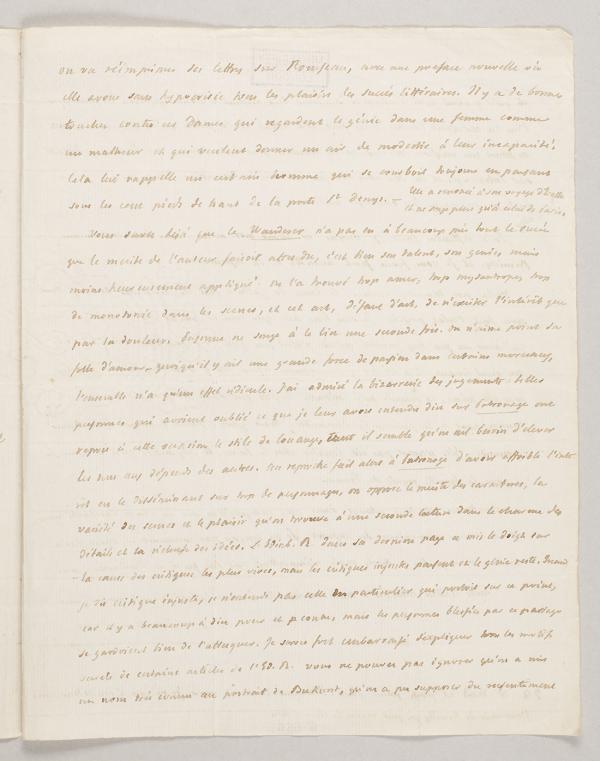 on va réimprimer ses lettres sur Rousseau, avec une preface nouvelle où
elle avoue sans hypocrisie tous les plaisirs des succès littéraires. Il y a de bonnes
touches contre ces Dames qui regardent le génie dans une femme comme
un malheur et qui veulent donner un air de modestie à leur incapacité.
Cela lui rappelle un certain homme qui se courboit toujours en passant
sous les cent pieds de haut de la porte St Denys. — Elle a renoncé à son voyage d'
et ne songe plus qu'à celui de Paris,
Vous savez déjà que le Wanderer n'a pas eu à beaucoup près tout le succès
que le merite de l'auteur faisoit attendre, c'est bien son talent, son génie, mais
moins heureusement appliqué. On l'a trouvé trop amer, trop mysantrope, trop
de monotonie dans les scenes, et cet art, défaut d'art, de n'exciter l'intérêt que
par la douleur. Personne ne songe à le lire une seconde fois. On n'aime point sa
folle d'amour — quoiqu'il y ait une grande force de passion dans certains morceaux,
l'ensemble n'a qu'un effet ridicule. J'ai admiré la bizarrerie des jugements. telles
personnes qui avoient oublié ce que je leur avois entendu dire sur Patronage ont
repris à cette occasion le stile de louange, tant il semble qu'on ait besoin d'élever
les uns aux dépends des autres. Au reproche fait alors à Patronage d'avoir affoibli l'inté-
rêt en le disséminant sur trop de personnages, on oppose le merite des caractères, la
variété des scenes et le plaisir qu'on trouve à une seconde lecture dans le charme des
détails et la richesse des idées. L'Edinb. R dans sa derniere page a mis le doigt sur
la cause des critiques les plus vives, mais les critiques injustes passent et le génie reste. Quand
je dis critique injuste, je n'entends pas celle en particulier qui portoit sur ce point,
car il y a beaucoup à dire pour et contre, mais les personnes blessées par ce passage
se gardoient bien de l'attaquer. Je serois fort embarrassé d'expliquer tous les motifs
secrets de certains articles de l'Ed. R. vous ne pouvez pas ignorer qu'on a mis
un nom très connu au portrait de, qu'on a pu supposer du ressentiment